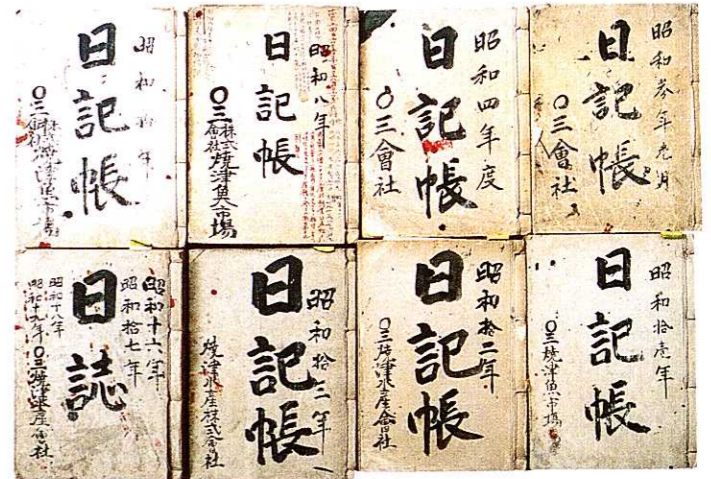 昭和参年月
日記帳
〇三會社
昭和四年度
日記帳
〇三會社
昭和八年
日記帳
〇三株式會社焼津魚市場
昭和拾年
日記帳
〇三株式會社焼津魚市場
昭和拾壱年
日記帳
〇三焼津魚市場
昭和拾二年
日記帳
〇三焼津水産會社
昭和拾三年
日記帳
焼津水産株式会社
昭和十六年
昭和拾七年
日誌
昭和十八年
昭和十九年
〇三焼津水産會社